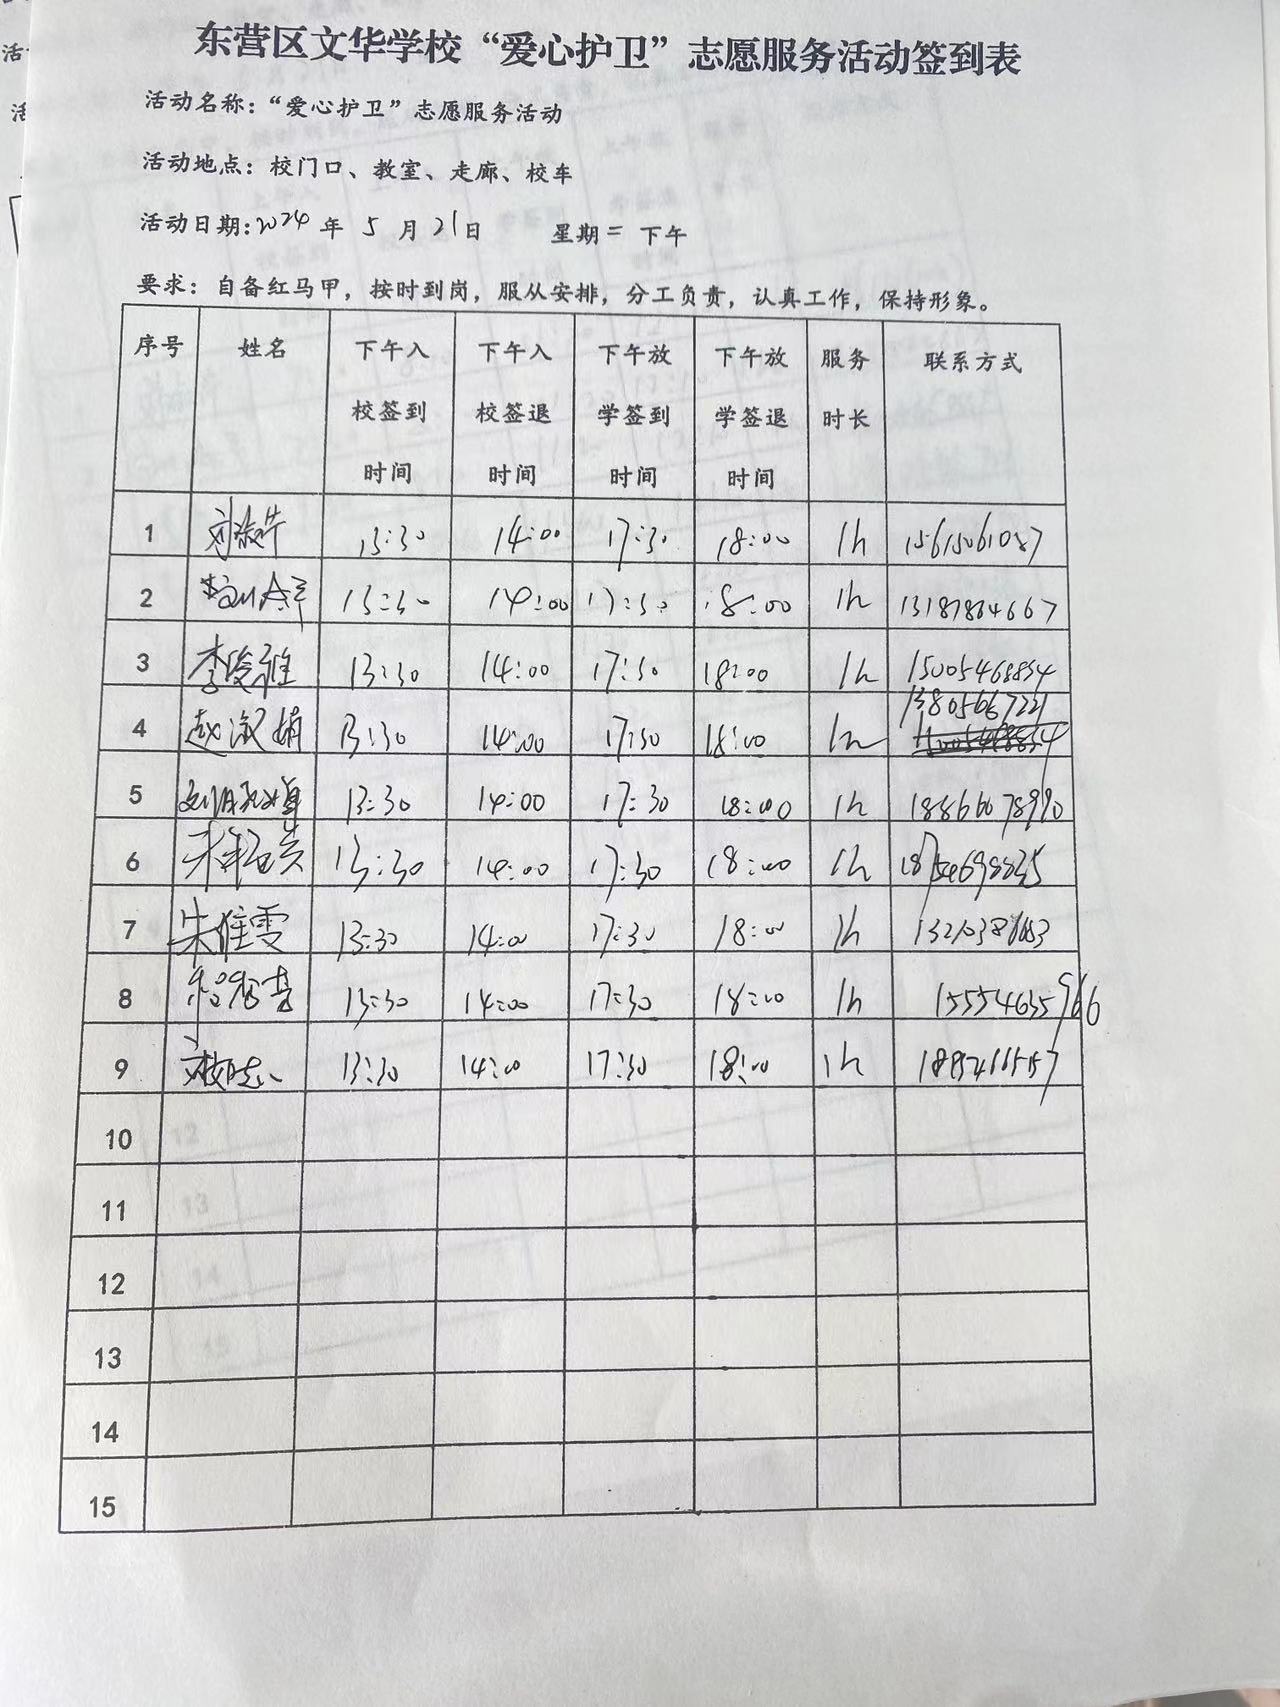 东营区文华学校“爱心护卫”志愿服务活动签到表
活动名称：“爱心护卫”志愿服务活动
活动地点：校门口、教室、走廊、校车
活动日期：2024 年 5 月 21 日 星期二 下午
要求：自备红马甲，按时到岗，服从安排，分工负责，认真工作，保持形象。
序号 姓名 下午入校签到时间 下午入校签退时间 下午放学签到时间 下午放学签退时间 服务时长 联系方式
1 13:30 14:00 17:30 18:00 1h 15615061087
2 13:30 14:00 17:30 18:00 1h 13187884667
3 李俊雅 13:30 14:00 17:30 18:00 1h 15005468854
4 赵淑娟 13:30 14:00 17:30 18:00 1h 13805667221
5 13:30 14:00 17:30 18:00 1h 18866078990
6 13:30 14:00 17:30 18:00 1h
7 朱佳雯 13:30 14:00 17:30 18:00 1h
8 13:30 14:00 17:30 18:00 1h 15554635966
9 13:30 14:00 17:30 18:00 1h
10
11
12
13
14
15